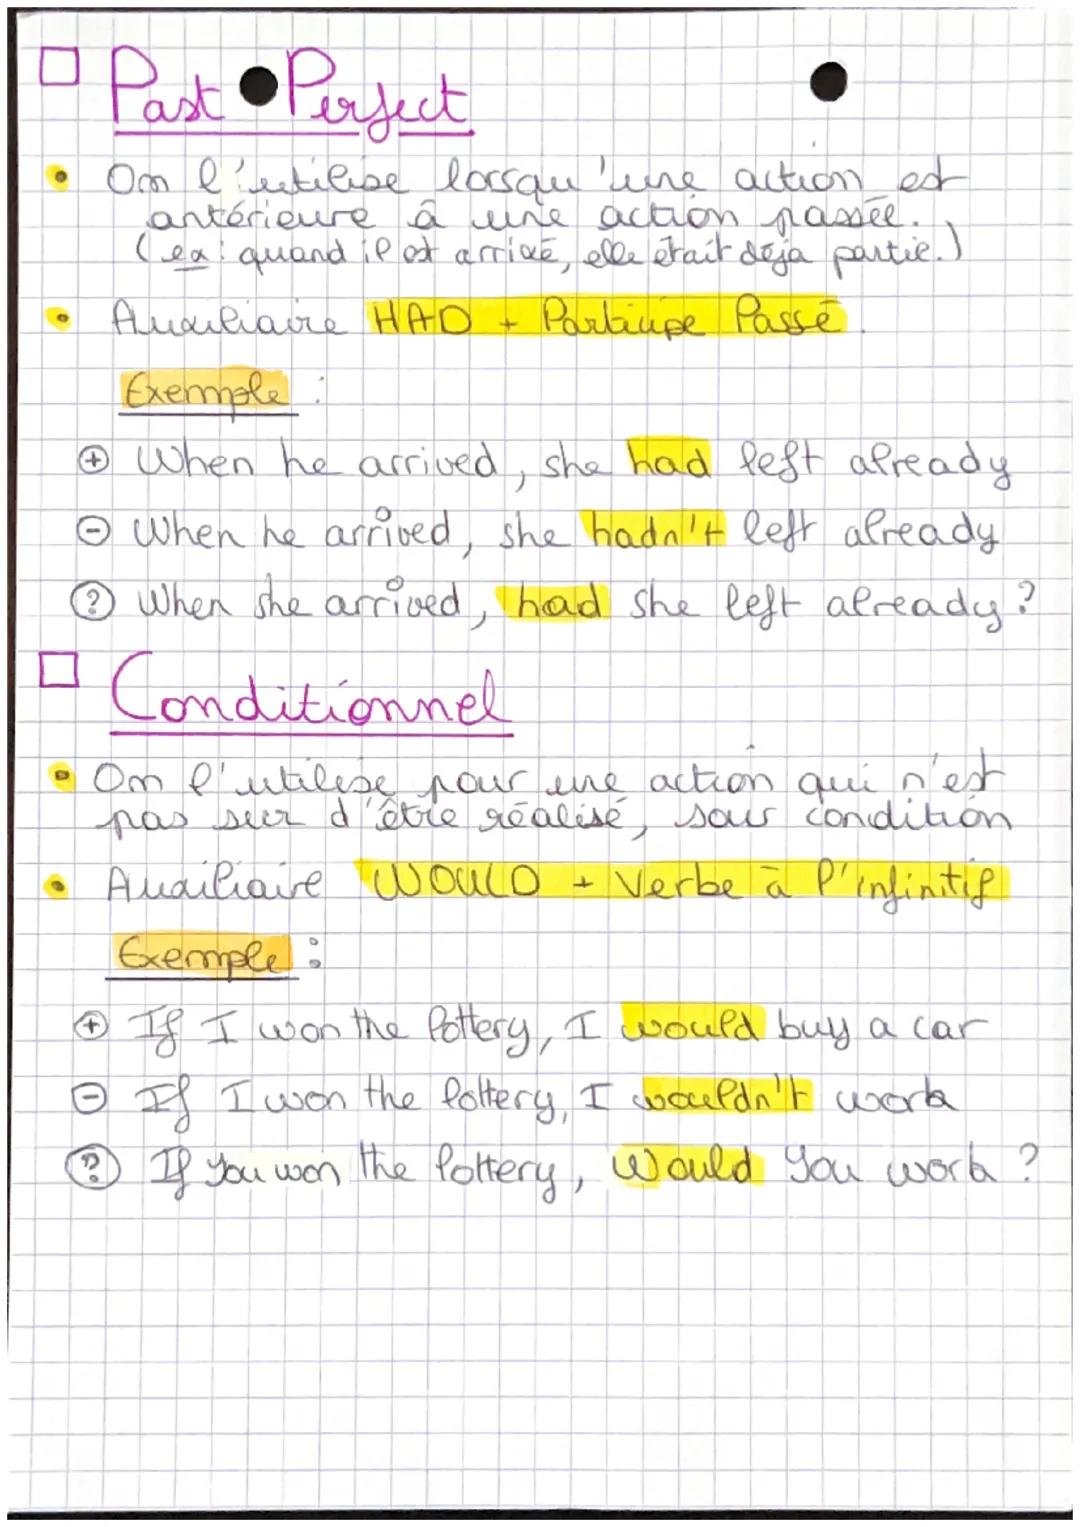 Past Perfect
On l'utilise lorsqu'une action est
antérieure à une action passée.
(ex: quand il est arrivé, elle était déja partie.)
Auxiliaire HAD + Participe Passé.
Exemple :
+ When he arrived, she had left already
- When he arrived, she hadn't left already
? When she arrived, had she left already?
Conditionnel
On l'utilise pour une action qui n'est
pas sur d'être réalisé, sous condition
Auxiliaire WOULD + Verbe à l'infinitif
Exemple :
+ If I won the lottery, I would buy a car
- If I won the lottery, I wouldn't work
? If you won the lottery, would you work ?